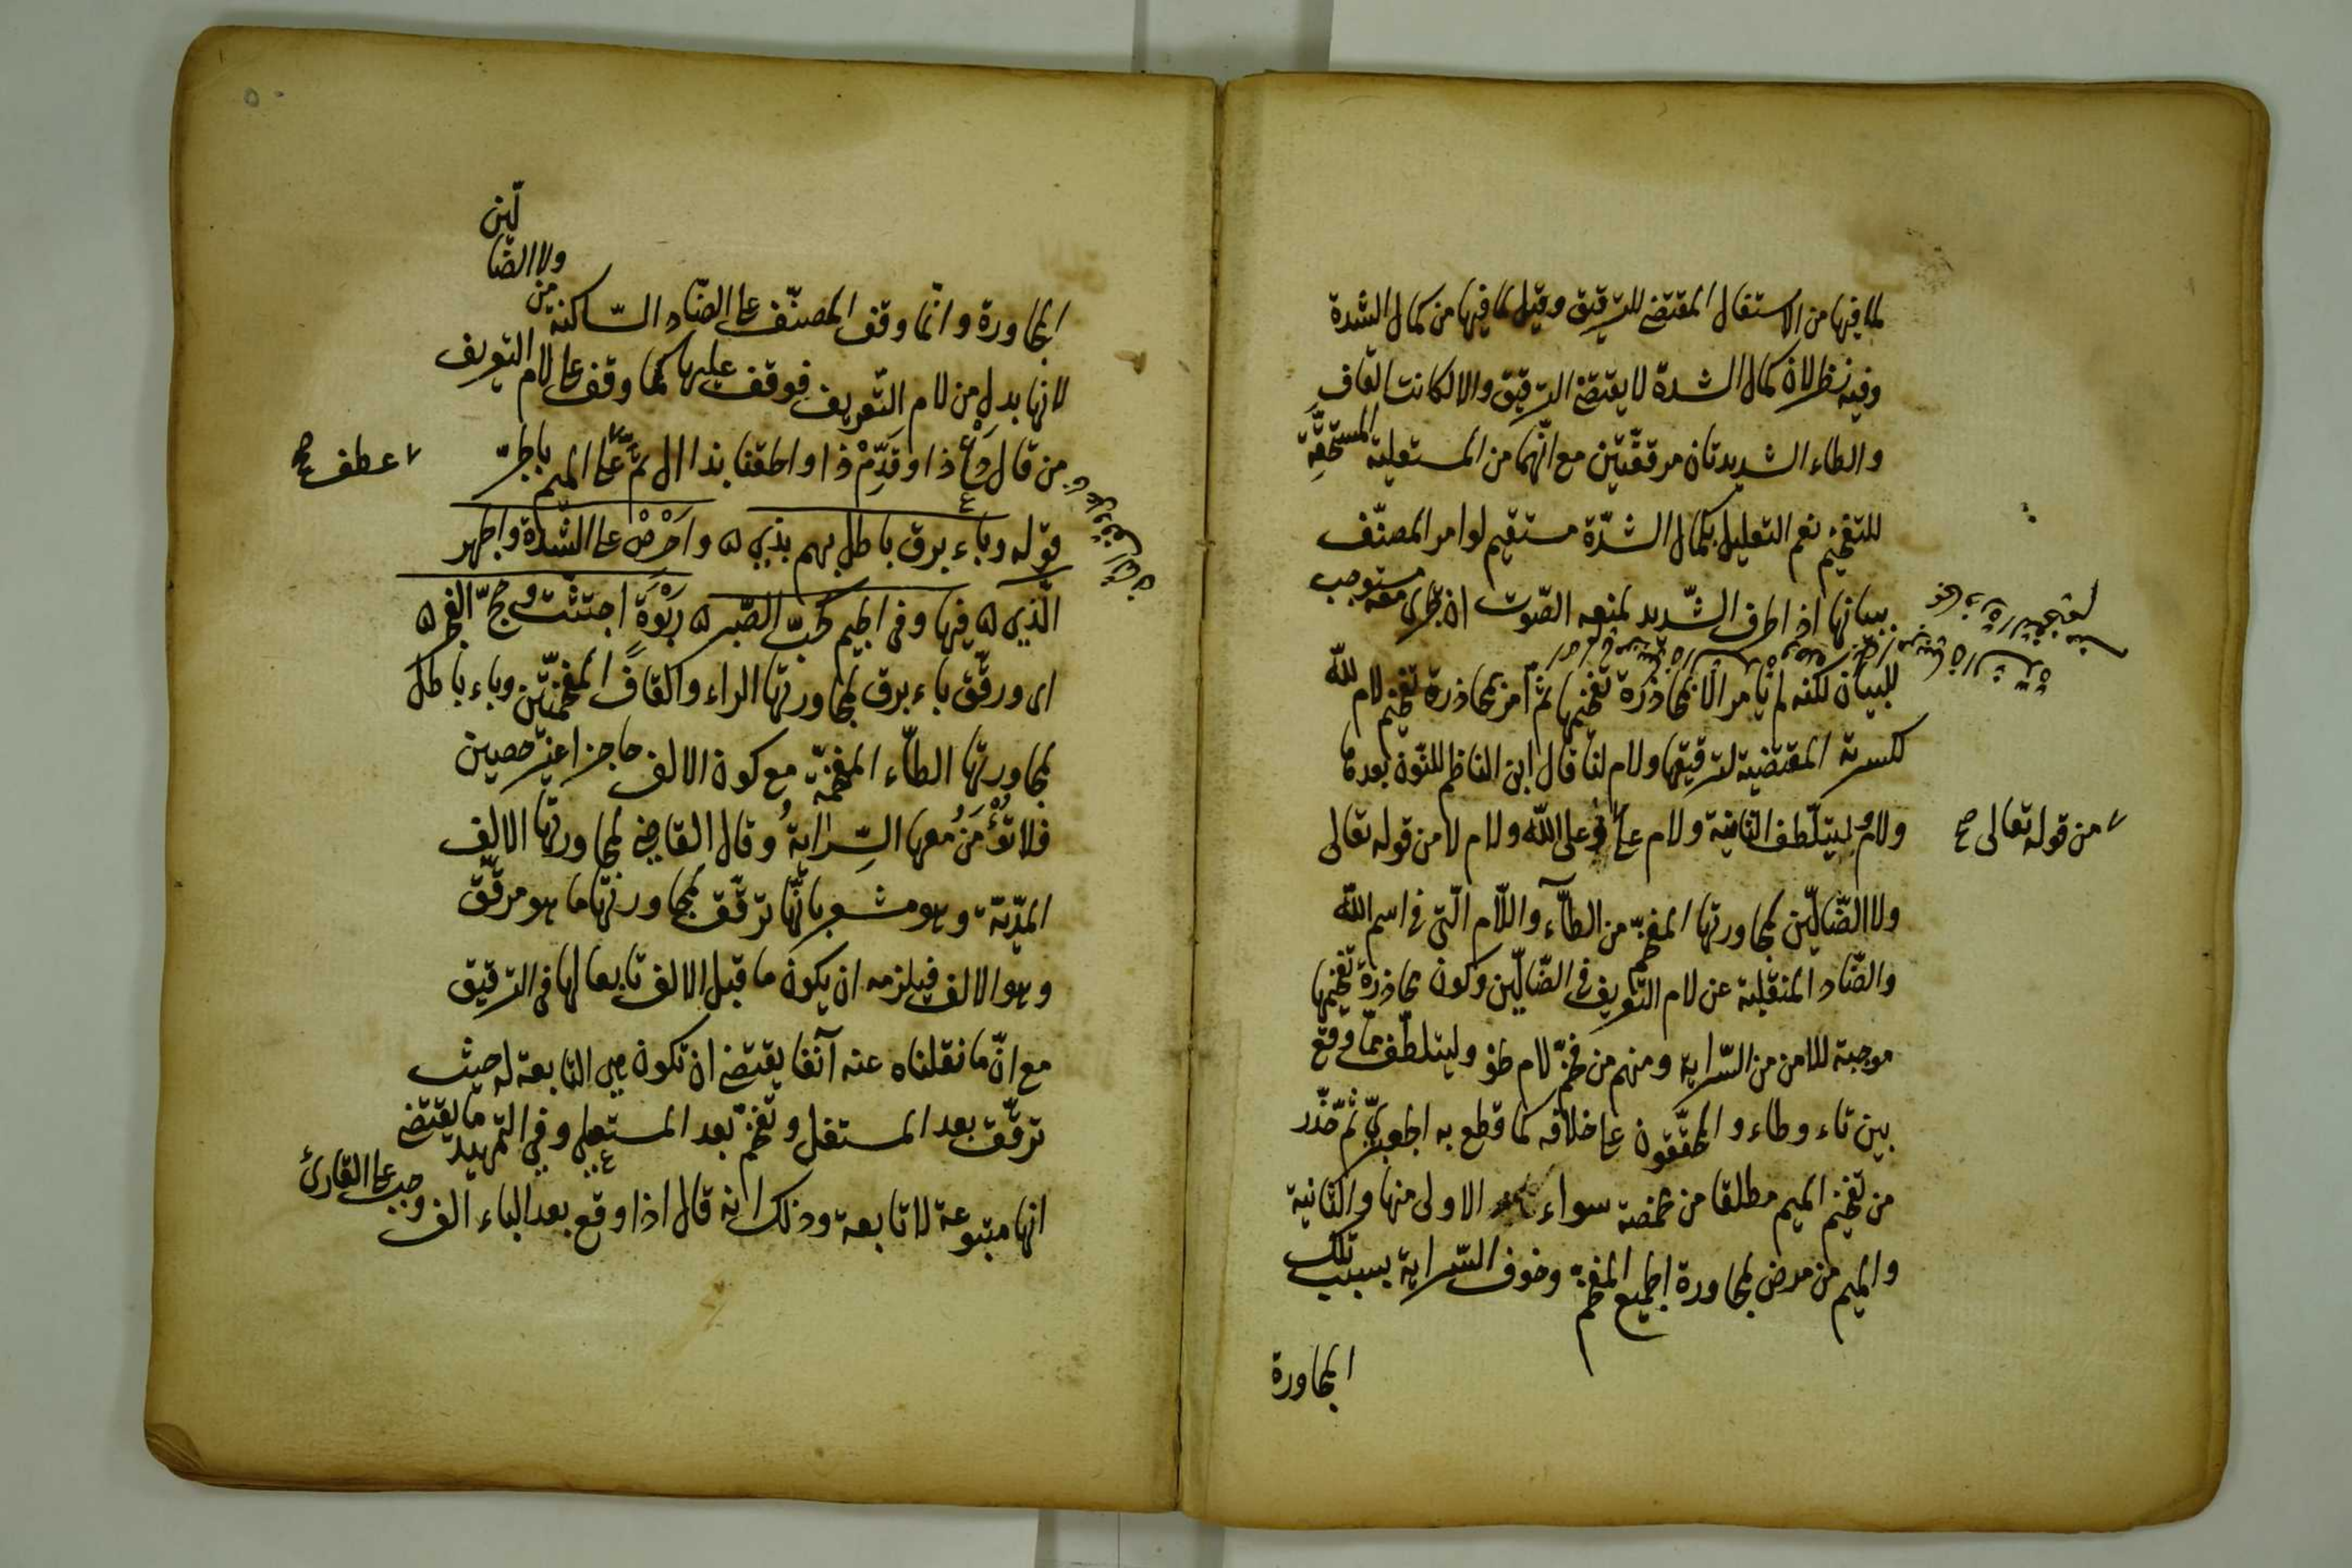 لما فيها من الاستفال المقتضي للترقيق وقيل لما فيها من كمال الشدة
وفيه نظر لان كمال الشدة لا يقتضي الترقيق والا لكانت القاف
والطاء الشديدتان مرققتين مع انهما من المستعلية المستحقة
للتفخيم نعم التعليل بكمال الشدّة مستقيم لو امر المصنّف
ببيانها اذ الحرف الشديد لمنعه الصّوت ان يجري معه مستوجب
للبيان لكنه لم يأمر الا بمحاذرة تفخيمها ثم أمر بمحاذرة تفخيم لام لله
لكسرته المقتضية لترقيقها ولام لنا قال ابن الناظم للنّون بعدها
ولام وليتلطّف الثانية ولام على وعلى الله ولام لا من قوله تعالى
من قوله تعالى صح
ولا الضّالّين لمجاورتها المفخم من الطآء واللّام الّتي في اسم الله
والضّاد المنقلبة عن لام التعريف في الضّالّين وكون محاذرة تفخيمها
موجبة للامن من السّراية ومنهم من فخّم لام ولیتلطّف ممّا وقع
بين تاء وطاء والمحققون على خلافه كما قطع به الجعبريّ ثم حذّر
من تفخيم الميم مطلقا من مخمصة سواء الاولى منها والثانية
والميم من مرض لمجاورة الجميع المفخم وخوف السّراية بسبب تلك
المجاورة
المجاورة وانّما وقف المصنّف على الضّاد السّاكنة من ولا الضّا
لّين
لانها بدل من لام التّعريف فوقف عليها كما وقف على لام التعريف
من قال دع ذا وقدّم ذا والحقنا بذا ال ثم عطف على الميم بالجرّ
عطف صح
قوله وباء برق باطل بهم بذي ه واحرص على الشّدة والجهر
الّذي ه فيها وفى الجيم كحبّ الصّبر ه ربوة اجتثت وحجّ الفجر ه
اى ورقّق باء برق لمجاورتها الراء والقاف المفخّمتين وباء باطل
لمجاورتها الطآء المفخّمة مع كون الالف حاجزا غير حصين
فلا تؤمن معها السّراية وقال القاضي لمجاورتها الالف
المدّيّة وهو مشعر بانّها ترقّق لمجاورتها ما هو مرقّق
وهو الالف فيلزمه ان يكون ما قبل الالف تابعا لها فى الترقيق
مع انّ ما نقلناه عنه آنفا يقتضي ان تكون هي التابعة له حيث
ترقّق بعد المستفل وتفخّم بعد المستعلي وفي التمهيد ما يقتضي
انها متبوعة لا تابعة وذلك انه قال اذا وقع بعد الباء الف وجب على القارئ